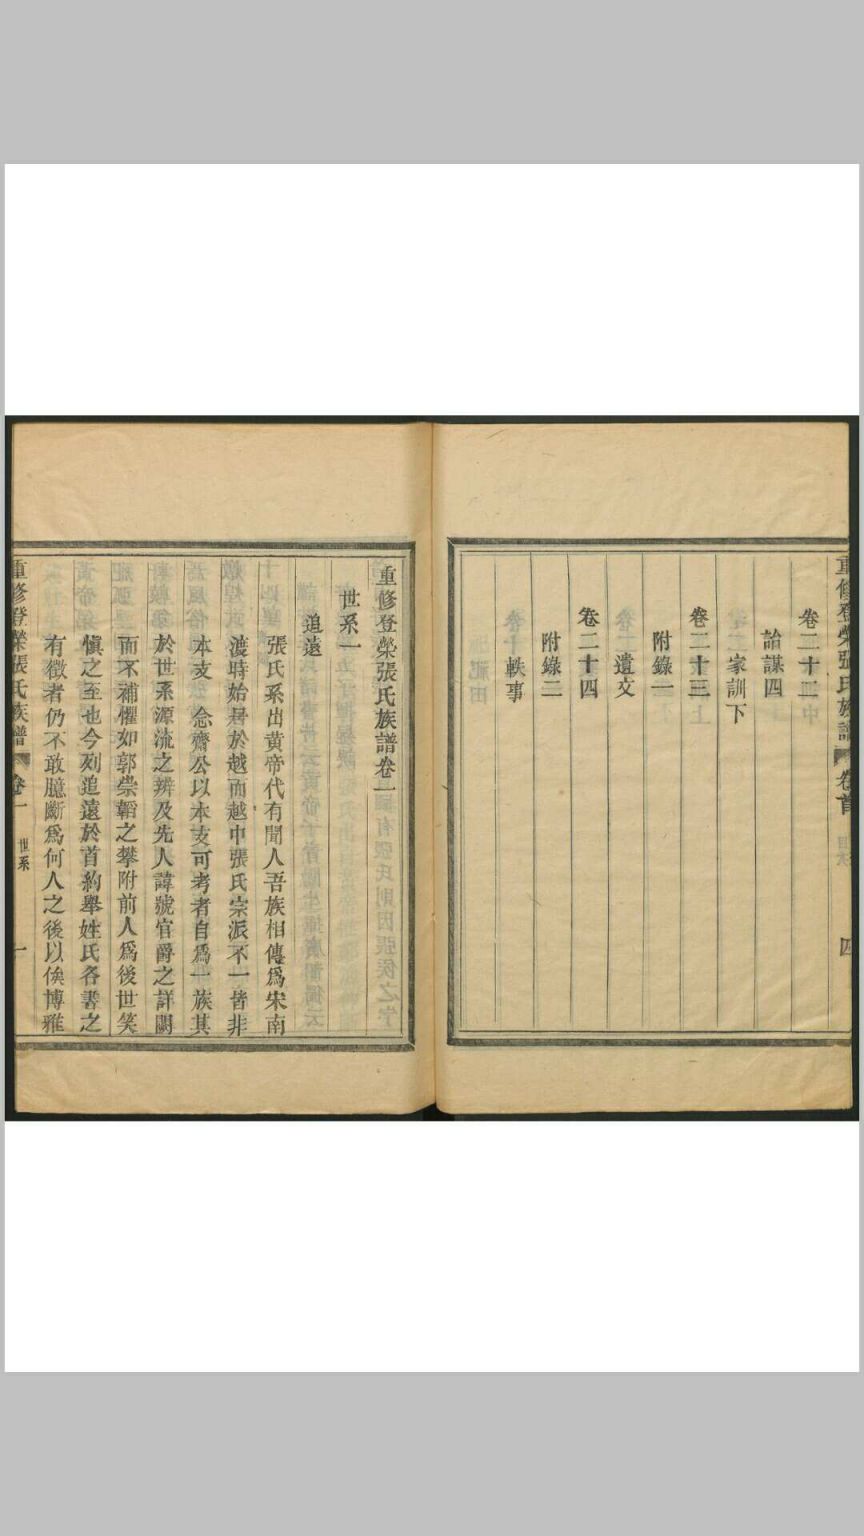 重修登榮張氏族譜 卷首 四
卷二十二
詒謀四
家訓下
卷二十三
附錄一
遺文
卷二十四
附錄二
軼事
重修登榮張氏族譜卷一
世系一
追遠
張氏系出黃帝代有聞人吾族相傳爲宋南
渡時始居於越而越中張氏宗派不一皆非
本支 念齋公以本支可考者自爲一族其
於世系源流之辨及先人諱號官爵之詳闕
而不補懼如郭崇韜之攀附前人爲後世笑
愼之至也今列追遠於首約舉姓氏各書之
有徵者仍不敢臆斷爲何人之後以俟博雅
重修登榮張氏族譜 卷一 世系 一